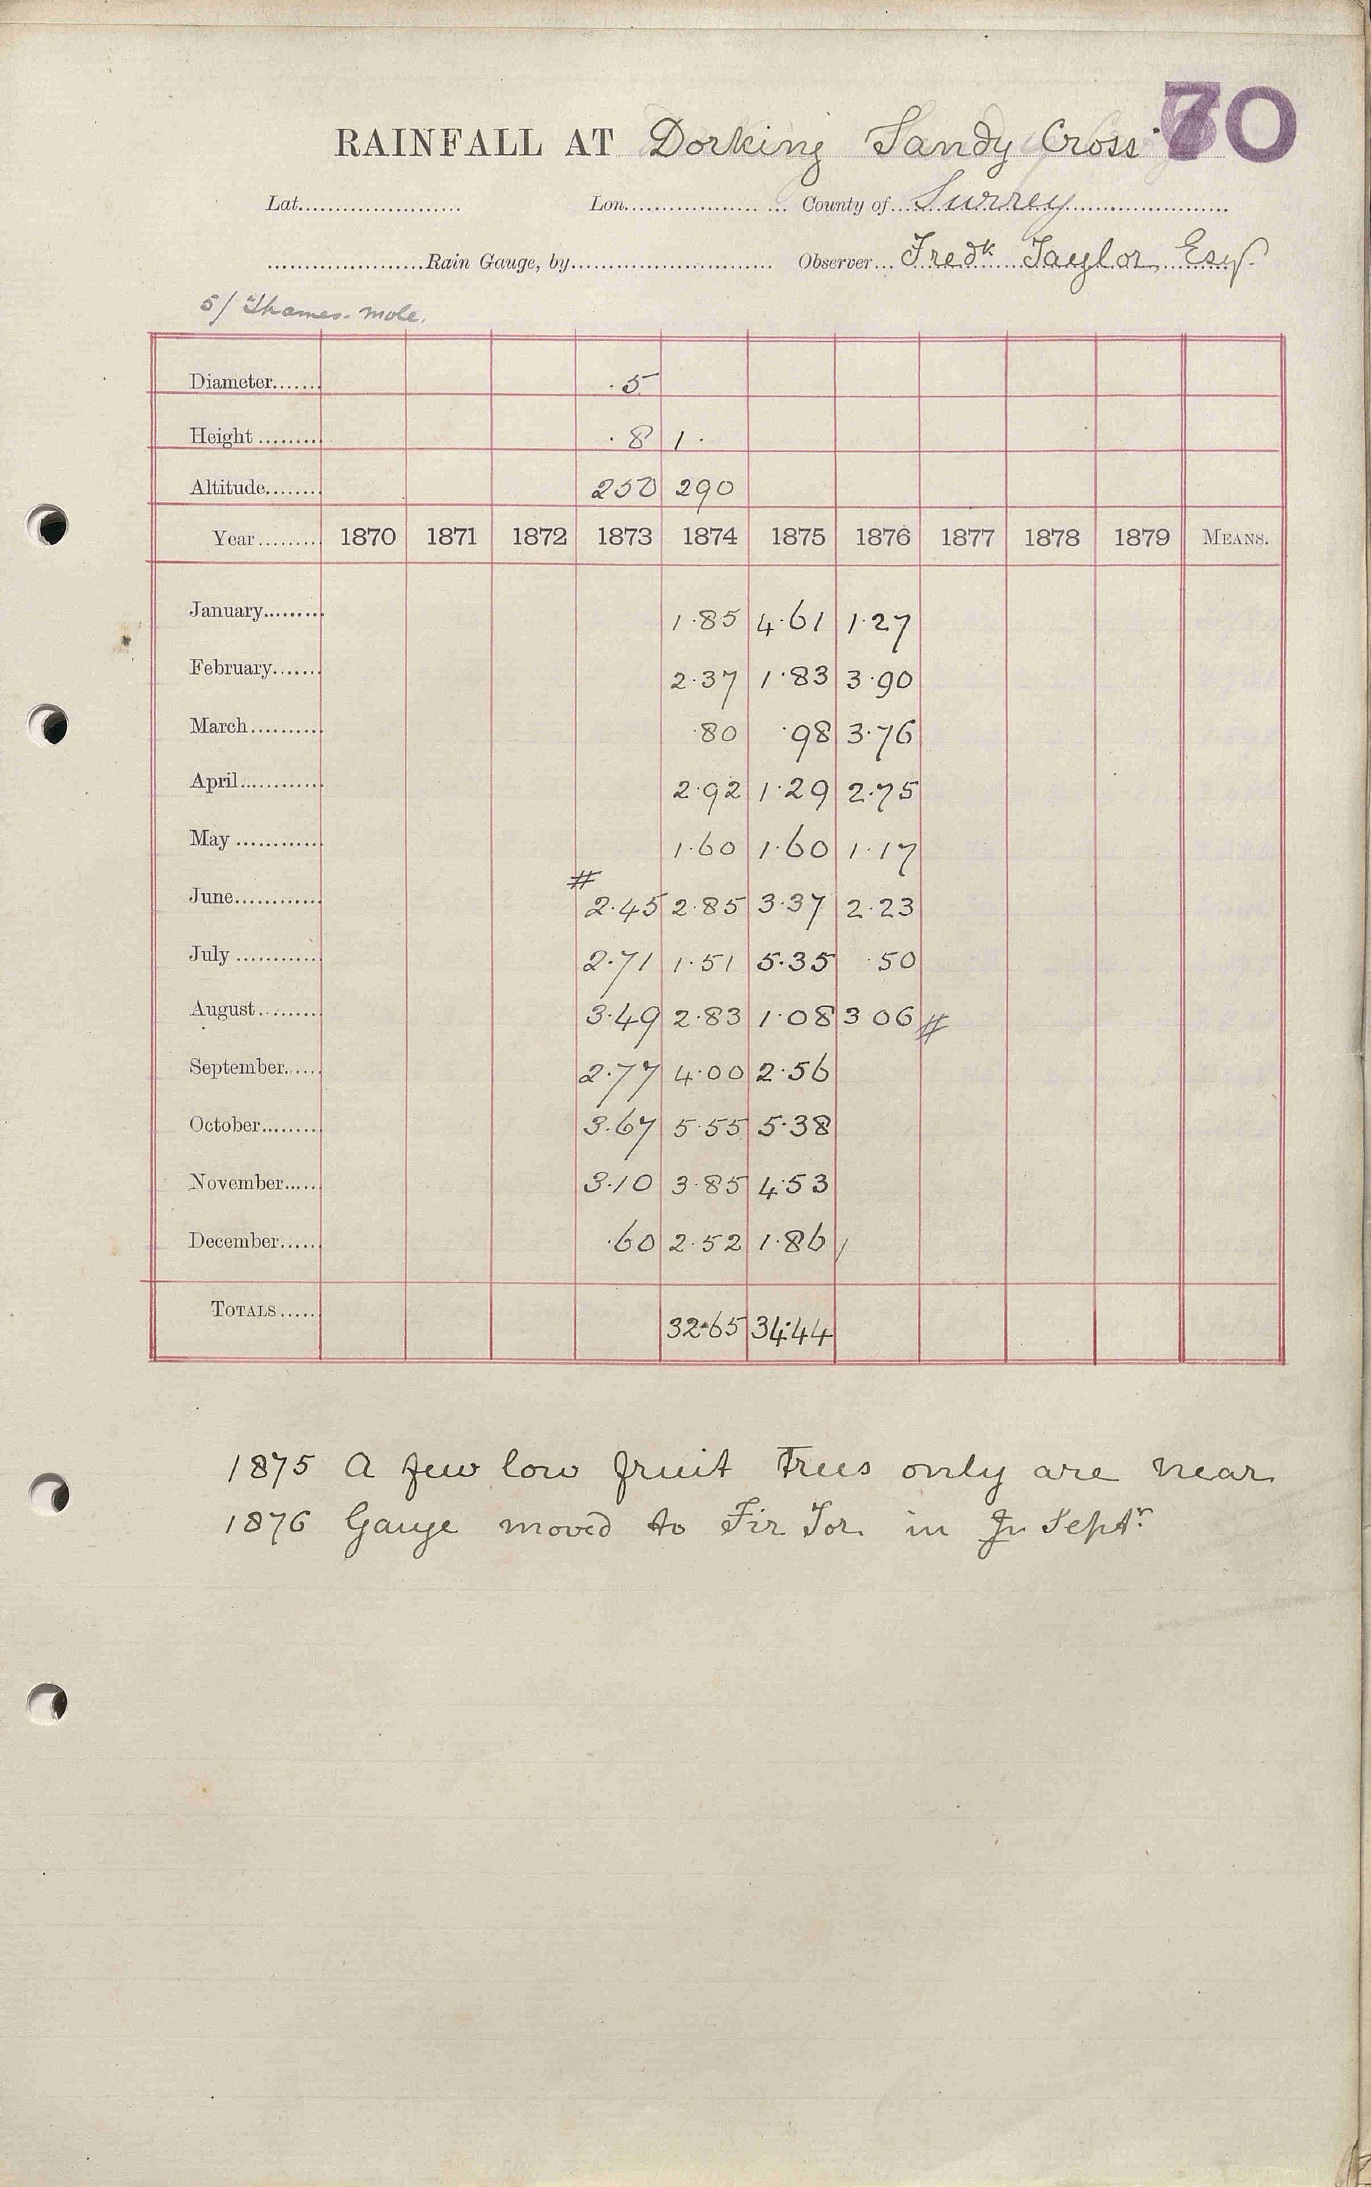 70
RAINFALL AT Dorking Sandy Cross
Lat...................... Lon................... ... County of...Surrey......................
......................Rain Gauge, by............................ Observer...Fredk Taylor Esq.
5/ Thames-Mole.
Diameter....... ·5
Height ......... ·8 1·
Altitude........ 250 290
Year......... 1870 1871 1872 1873 1874 1875 1876 1877 1878 1879 MEANS.
January......... 1·85 4·61 1·27
February....... 2·37 1·83 3·90
March.......... ·80 ·98 3·76
April............ 2·92 1·29 2·75
May ............ 1·60 1·60 1·17
June............ # 2·45 2·85 3·37 2·23
July ............ 2·71 1·51 5·35 ·50
August......... 3·49 2·83 1·08 3 06 #
September...... 2·77 4·00 2·56
October........ 3·67 5·55 5·38
November...... 3·10 3·85 4·53
December...... ·60 2·52 1·86
TOTALS...... 32·65 34·44
1875 A few low fruit Trees only are near
1876 Gauge moved to Fir Tor in Septr